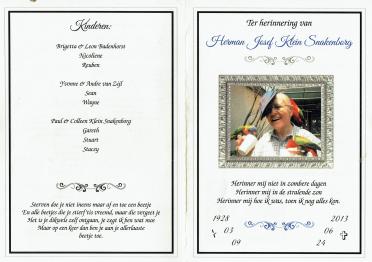 Kinderen:
Brigetta & Leon Badenhorst
Nicoliene
Reuben
Yvonne & Andre van Zijl
Sean
Wayne
Paul & Colleen Klein Snakenborg
Gareth
Stuart
Stacey
Sterven doe je niet ineens maar af en toe een beetje
En alle beetjes die je stierf 'tis vreemd, maar die vergeet je
Het is je dikwijls zelf ontgaan, je zegt ik ben wat moe
Maar op een keer dan ben je aan je allerlaatste
beetje toe.
Ter herinnering van
Herman Josef Klein Snakenborg
Herinner mij niet in sombere dagen
Herinner mij in de stralende zon
Herinner mij hoe ik was, toen ik nog alles kon.
1928 2013
03 06
09 24